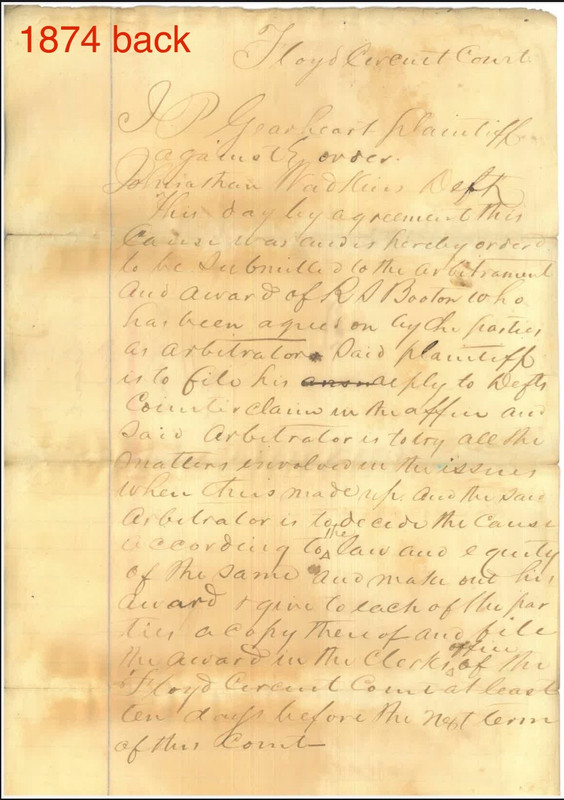 1874 back
Floyd Circuit Court
J P Gearheart plaintiff
against } order.
Johnathan Wadkins Deft
This day by agreement this
Cause was and is hereby orderd
to be Submitted to the arbitrament
and award of R S Booton who
has been agreed on by the parties
as arbitrator. Said plaintiff
is to file his reply to Defts
Counterclaim in the office and
Said Arbitrator is to try all the
matters involved in the issues
when thus made up. and the said
Arbitrator is to decide the Cause
according to the law and equity
of the same and make out his
award & give to each of the par
ties a copy thereof and file
the award in the Clerks office of the
Floyd Circuit Court at least
ten days before the next term
of this Court